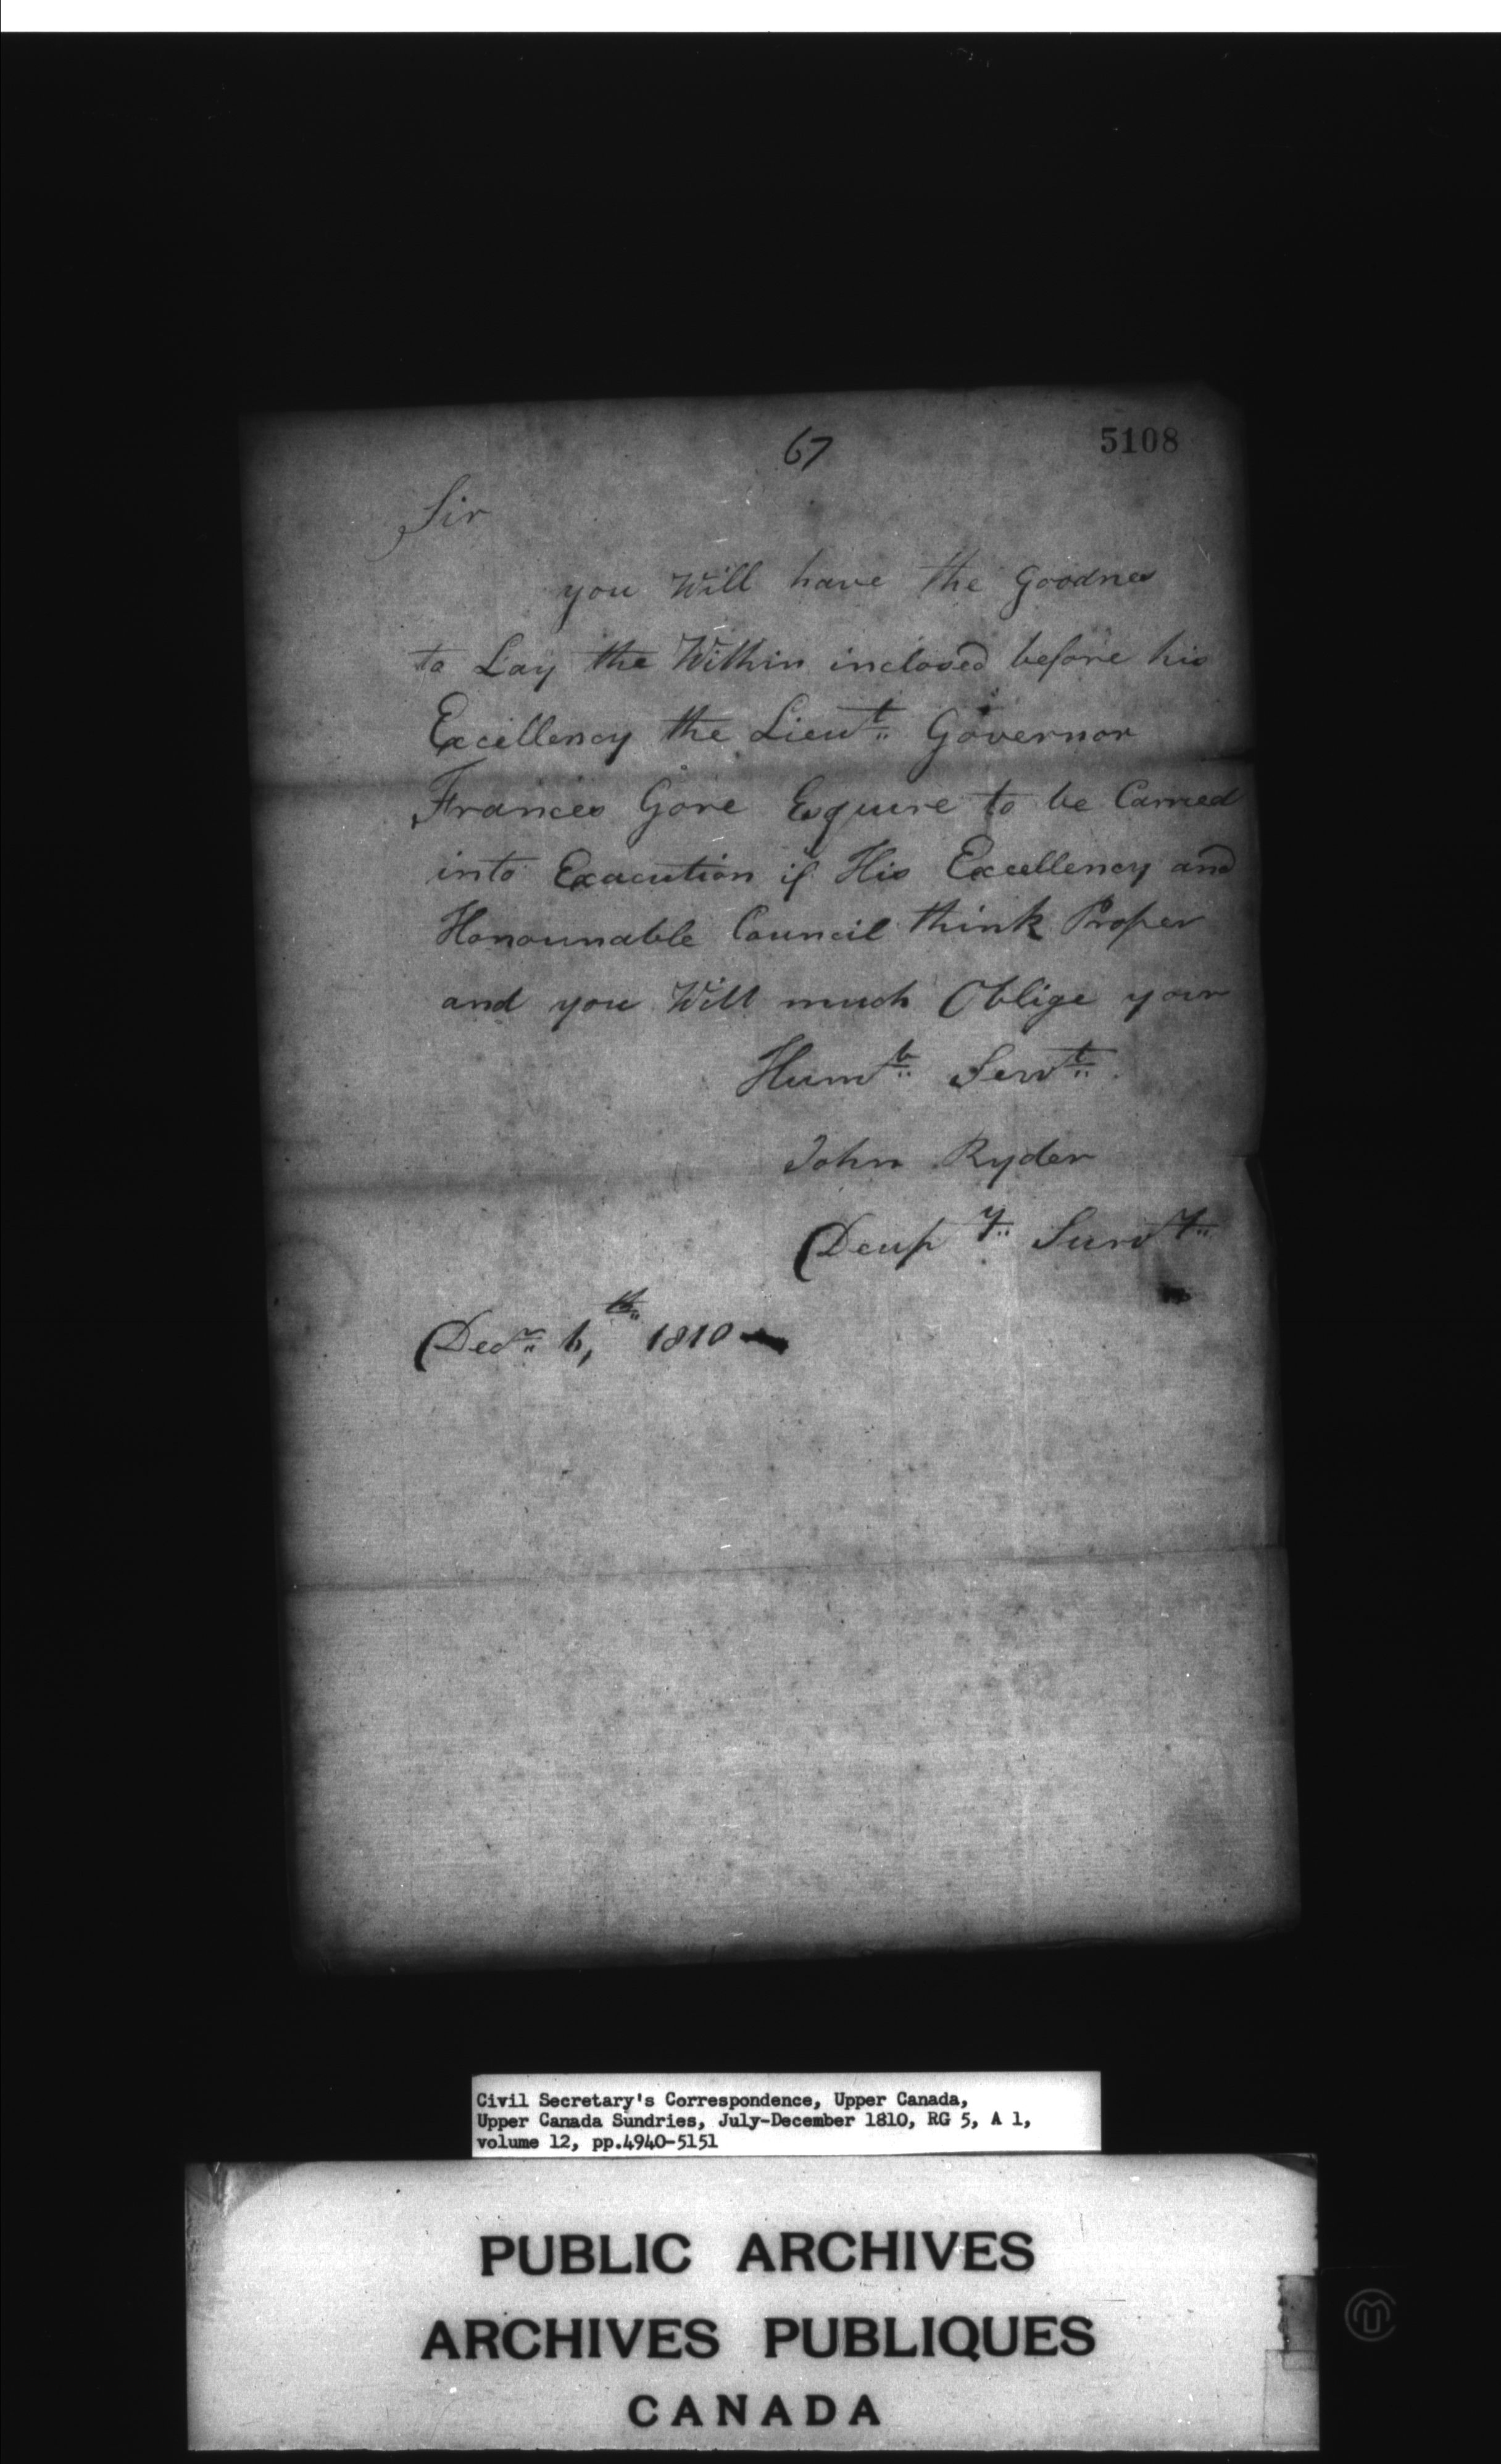 67
5108
Sir
you Will have the Goodness
to Lay the Within inclosed before his
Excellency the Lieut Governor
Frances Gore Esquire to be Carried
into Exacution if His Excellency and
Honourable Council think Proper
and you Will much Oblige your
Humb Servt
John Ryder
Deupy Survy
Decr 6, th 1810
Civil Secretary's Correspondence, Upper Canada,
Upper Canada Sundries, July-December 1810, RG 5, A 1,
volume 12, pp.4940-5151
PUBLIC ARCHIVES
ARCHIVES PUBLIQUES
CANADA